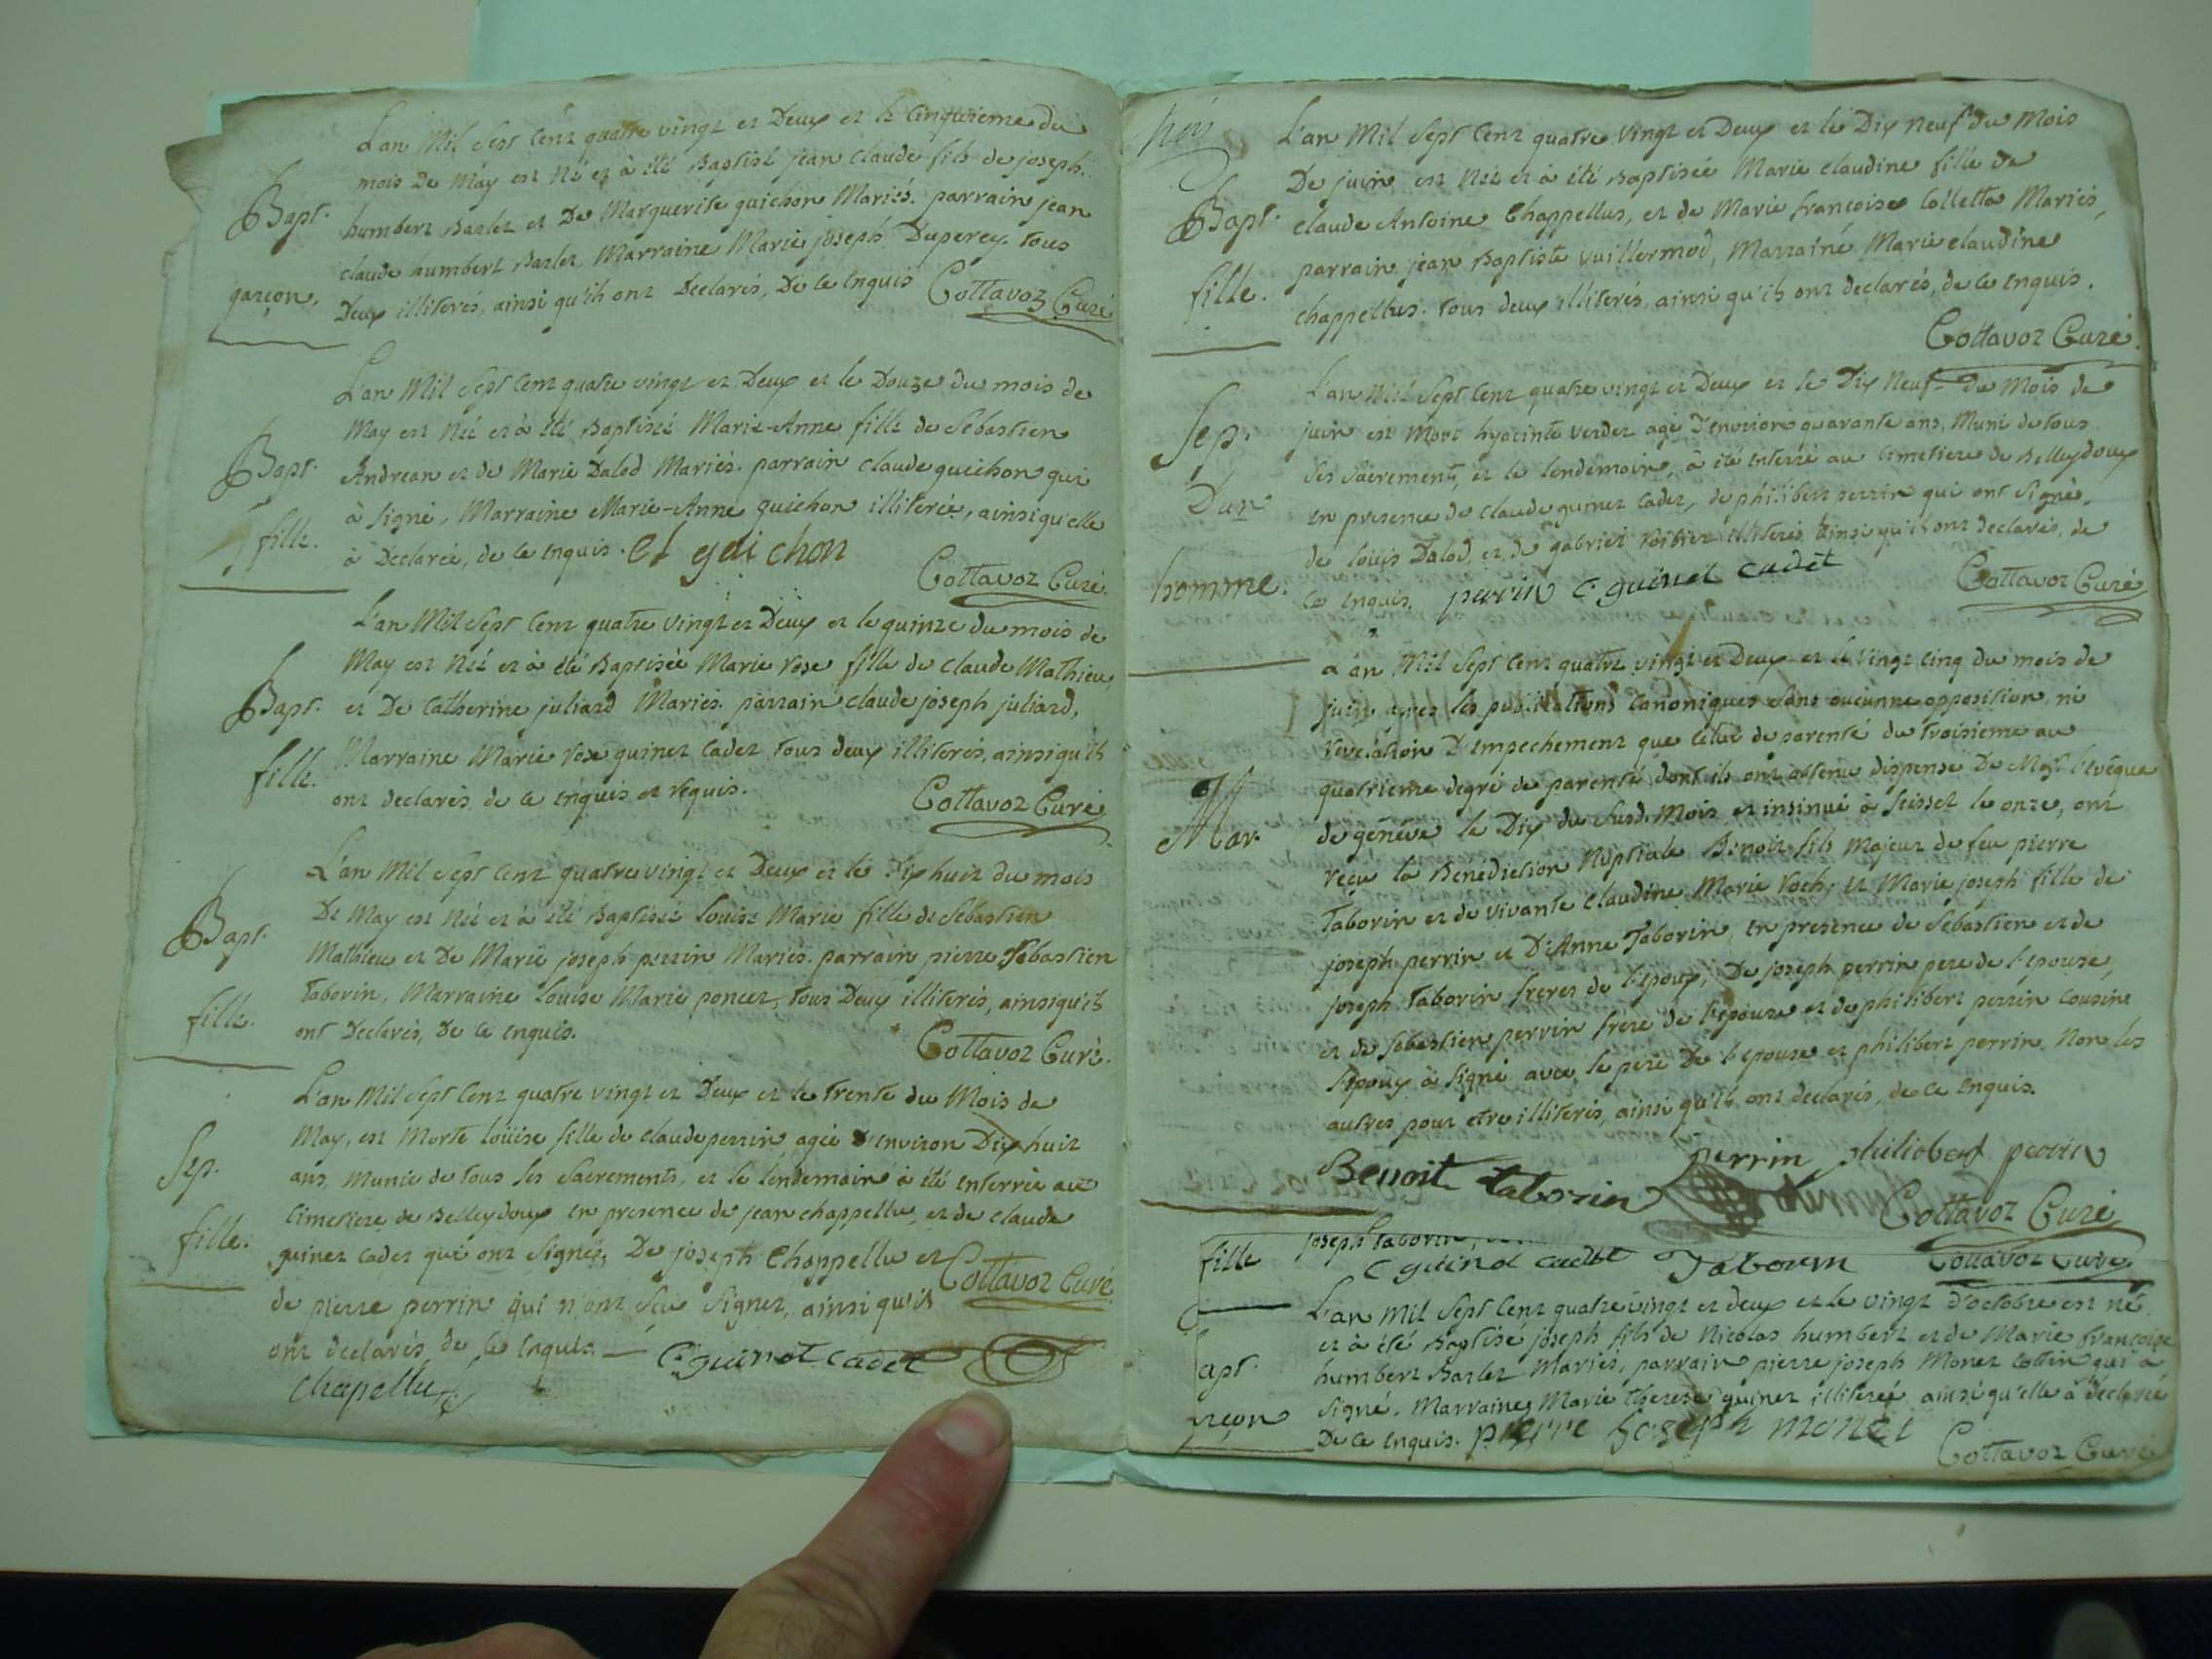 L'an Mil Sept Cent quatre vingt et Deux et le Cinquieme du
mois De May est Né et à été Baptisé jean claude fils de joseph
Bapt. humbert Barlet et De Marguerite guichon Mariés. parrain jean
claude humbert Barlet, Marraine Marie joseph Duperey. tous
garçon. Deux illiterés, ainsi qu'ils ont Declarés, De ce Enquis Cottavoz Curé
L'an Mil Sept Cent quatre vingt et Deux et le Douze du mois de
May est Née et à été Baptisée Marie-Anne fille de Sébastien
Bapt. Andrean et de Marie Dalod Mariés. parrain claude guichon qui
à signé, Marraine Marie-Anne guichon illiterée, ainsi qu'elle
fille. à Declarée, de ce enquis. Cl gui chon
Cottavoz Curé.
L'an Mil Sept Cent quatre vingt et Deux et le quinze du mois de
May est Née et à été Baptisée Marie Rose fille de claude Mathieu,
Bapt. et De Catherine juliard Mariés. parrain claude joseph juliard,
fille. Marraine Marie Rose guinet Cadet tous deux illiterés, ainsi qu'ils
ont declarés, de ce enquis et requis.
Cottavoz Curé
L'an Mil Sept Cent quatre vingt et Deux et le Dix huit du mois
De May est Née et à été Baptisée Louise Marie fille de Sébastien
Bapt. Mathieu et De Marie joseph perrin Mariés. parrain pierre Sébastien
Taborin, Marraine Louise Marie poncet, tous Deux illiterés, ainsi qu'ils
fille. ont Declarés, De ce enquis.
Cottavoz Curé.
L'an Mil Sept Cent quatre vingt et Deux et le trente du Mois de
May, est Morte Loüise fille de claude perrin, agée d'environ Dix huit
Sep. ans, munie de tous les Sacrements, et le lendemain à été enterrée au
Cimetiere de Belleydoux en presence de jean chappellu, et de claude
fille. guinet Cadet qui ont signés, De joseph Chappellu et Cottavoz Curé
de pierre perrin qui n'ont Sçu signer, ainsi qu'ils
ont declarés, de ce enquis. C. guinet cadet
chapellu
L'an Mil Sept Cent quatre vingt et Deux et le Dix neuf du Mois
De juin est Née et à été Baptisée Marie claudine fille de
Bapt. claude Antoine Chappellus, et de Marie françoise Colletta Mariés,
parrain jean Baptiste Vuillermod, Marraine Marie claudine
fille. chappellus. tous deux illiterés, ainsi qu'ils ont declarés, de ce enquis.
Cottavoz Curé.
L'an Mil Sept Cent quatre vingt et Deux et le Dix neuf du Mois de
Sep. juin est Mort hyacinte verdet agé D'environ quarante ans, Muni de tous
Ses Sacrements, et le lendemain, à été enterré au Cimetiere de Belleydoux
D'un en presence de claude guinet Cadet, de philibert perrin qui ont signé,
de Louis Dalod, et de gabriel illiterés, ainsi qu'ils ont declarés, de
homme. ce enquis. perrin C. guinet cadet Cottavoz Curé
L'an Mil Sept Cent quatre vingt et Deux et le vingt cinq du mois de
juin après les publications Canoniques sans aucunne opposition ni
revelation D'empechement que celui de parenté du troisieme au
quatrieme degré de parenté dont ils ont obtenu dispense De Mgr. l'évêque
Mar. de genéve le Dix du susd. Mois et insinué à Seissel le onze, ont
reçu la Benediction Nuptiale Benoit fils Majeur de feu pierre
Taborin et de vivante Claudine Marie Roch, et Marie joseph fille de
joseph perrin et D'Anne Taborin, en presence de Sébastien et de
joseph Taborin freres de l'Epoux, De joseph perrin pere de l'epouse,
et de Sébastien perrin frere de l'epouse et de philibert perrin cousins
l'epoux à signé avec le pere De l'epouse et philibert perrin, Non les
autres pour etre illiterés, ainsi qu'ils ont declarés, de ce enquis.
Benoit taborin perrin philiobert perrin
Cottavoz Curé
fille joseph Taborin,
C guinet cadet Taborin Cottavoz Curé
L'an Mil Sept Cent quatre vingt et deux et le vingt d'octobre est né
et à été Baptisé joseph fils de Nicolas humbert et de Marie françoise
apt. humbert Barlet Mariés, parrain pierre joseph Monet Cottin qui à
signé. Marraine Marie Therese guinet illiterée ainsi qu'elle à declarée
rçon De ce enquis. pierre joseph monet
Cottavoz Curé